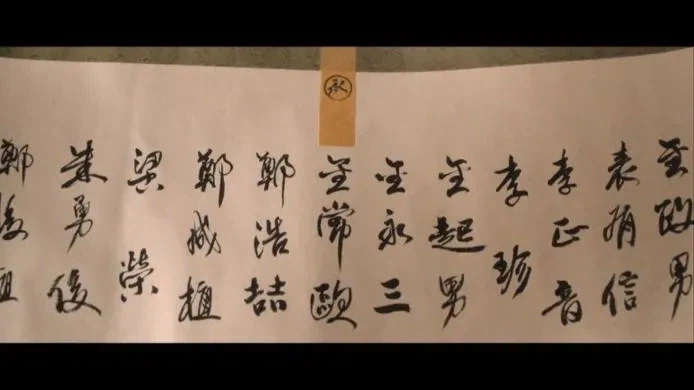 承
金政男
表有信
李正音
李珍
金起男
金永三
金常歐
鄭浩喆
鄭城植
梁榮
朱勇俊
鄭